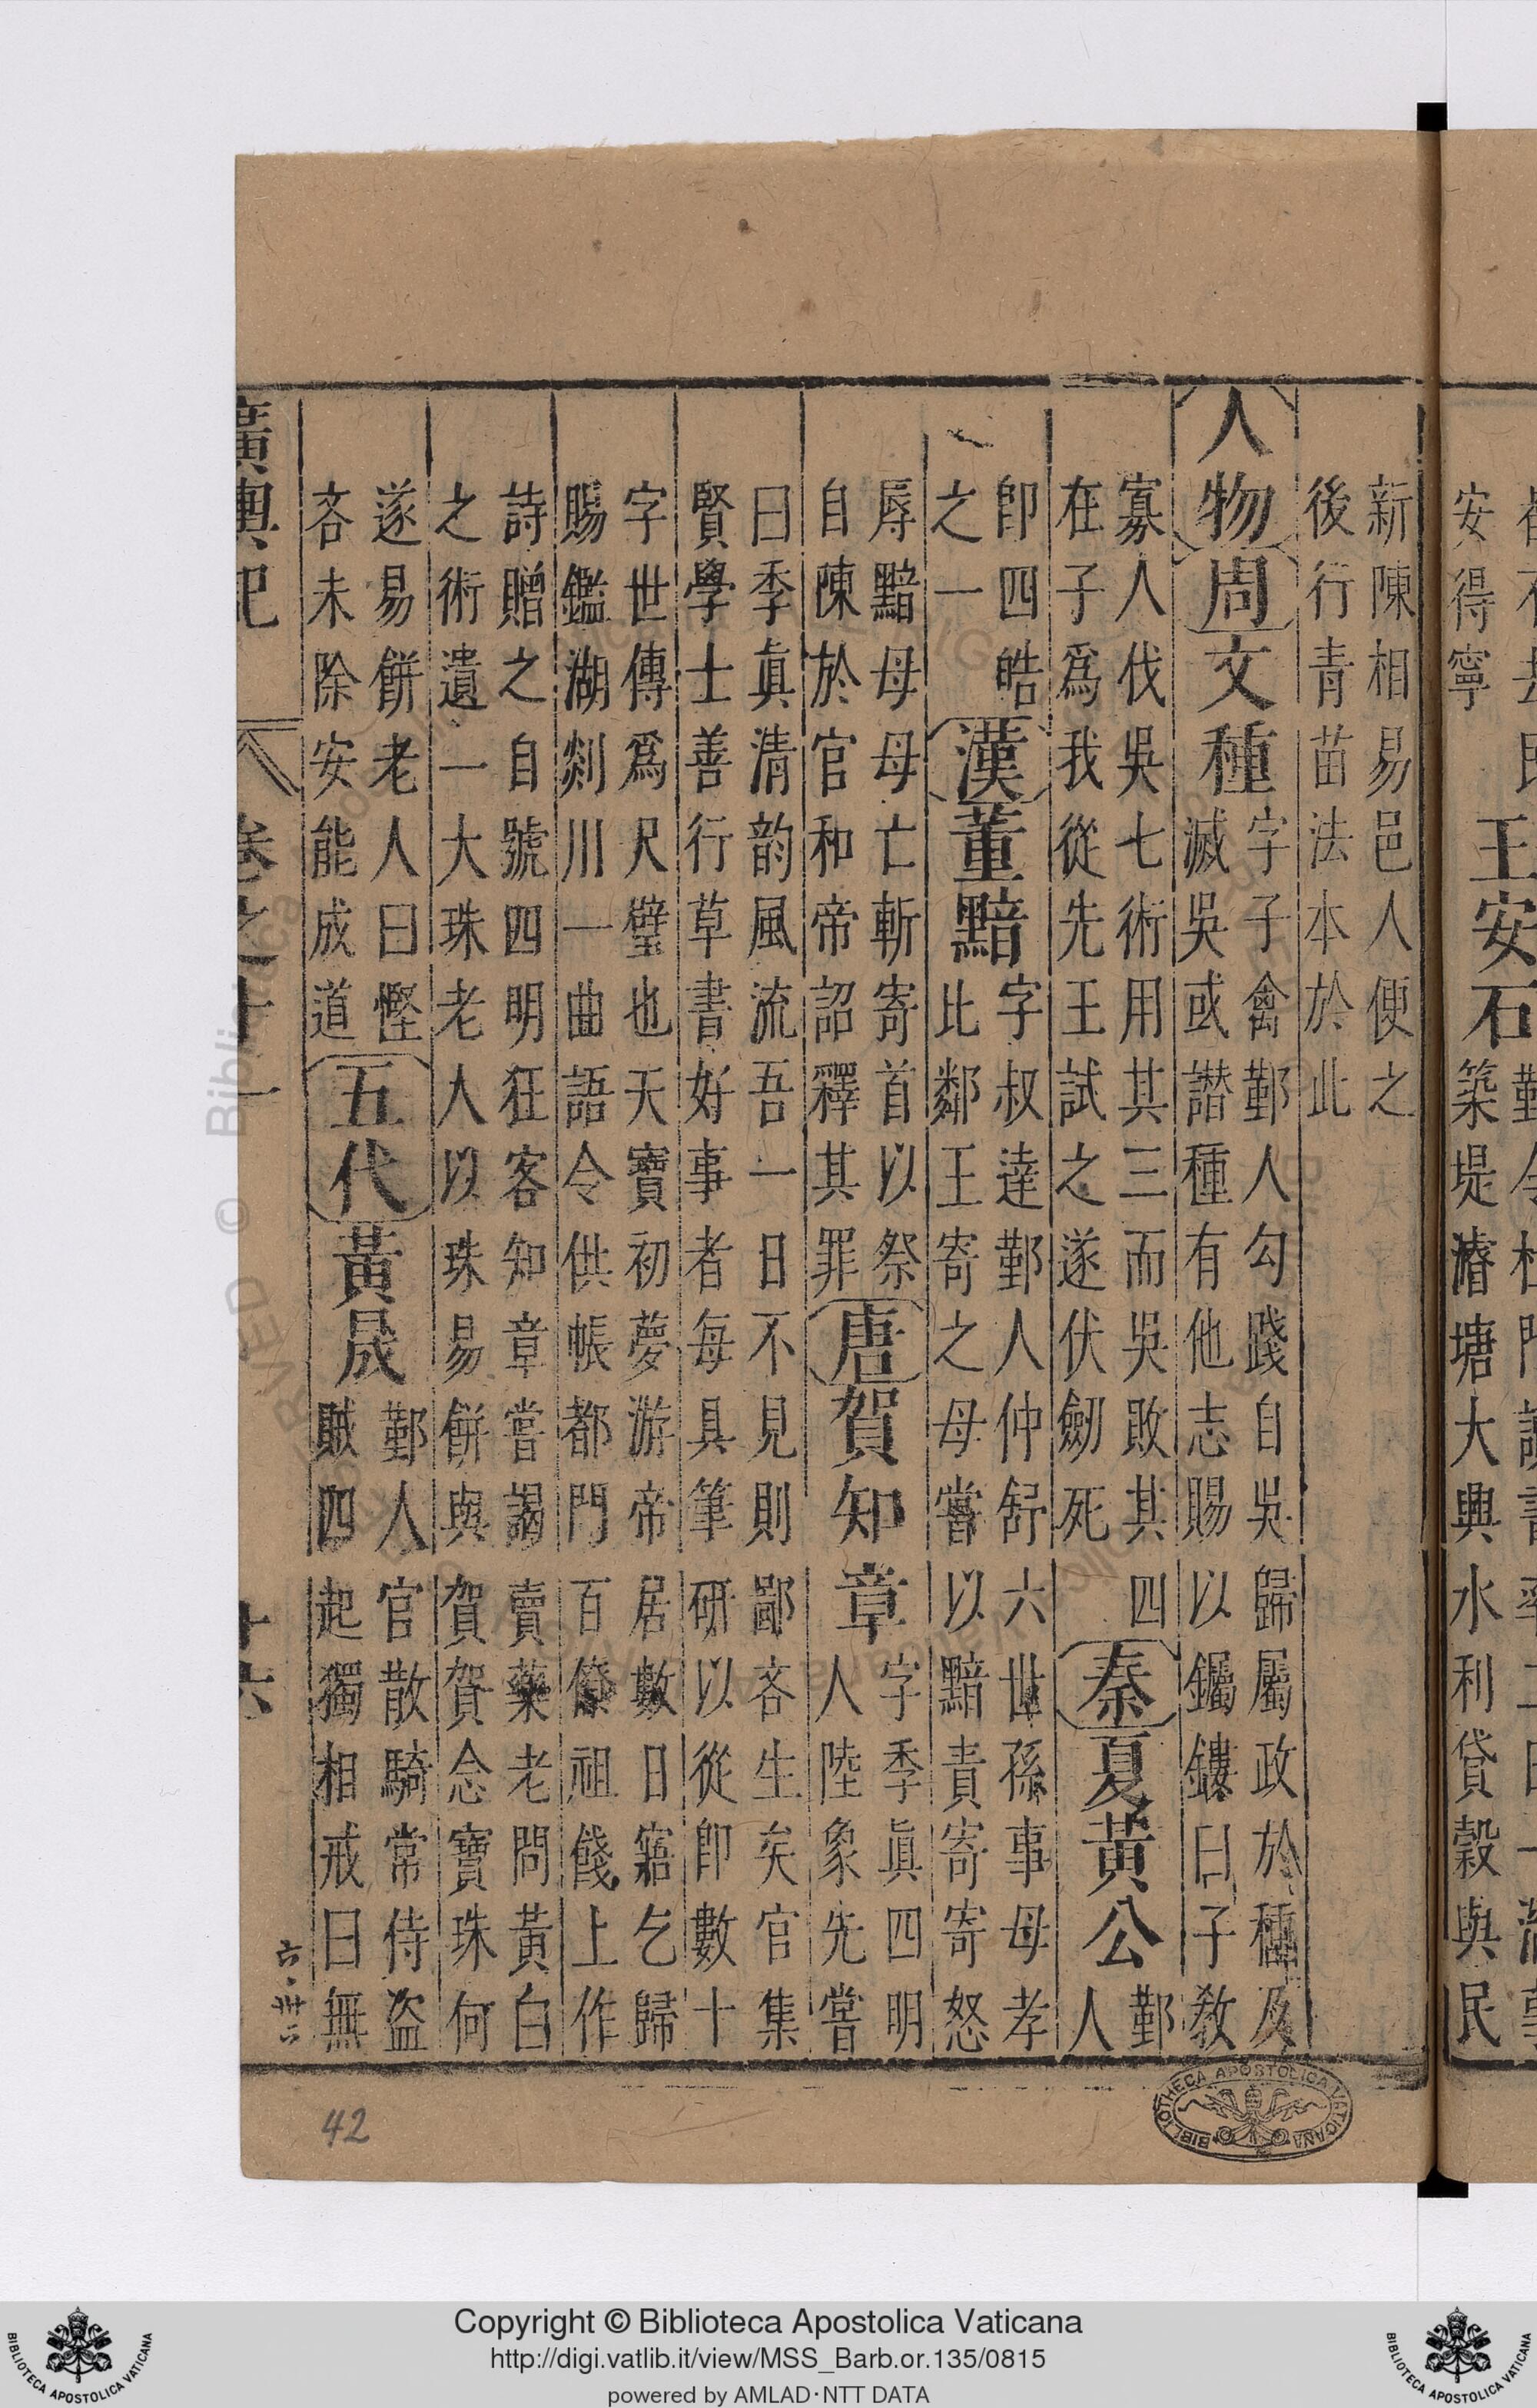 安得寧 王安石 築堤濬塘大興水利貸穀與民
新陳相易邑人便之
後行青苗法本於此
人物 周 文種 字子禽鄞人勾踐自吳歸屬政於種及
滅吳或譖種有他志賜以鐲鏤曰子敎
寡人伐吳七術用其三而吳敗其四
在子爲我從先王試之遂伏劒死 秦 夏黃公 鄞人
即四皓
之一 漢 董黯 字叔達鄞人仲舒六世孫事母孝
比鄰王寄之母嘗以黯責寄寄怒
辱黯母母亡斬寄首以祭
自陳於官和帝詔釋其罪 唐 賀知章 字季眞四明
人陸象先嘗
曰季眞清韵風流吾一日不見則鄙吝生矣官集
賢學士善行草書好事者每具筆硏以從卽數十
字世傳爲尺璧也天寶初夢游帝居數日寤乞歸
賜鑑湖剡川一曲語令供帳都門百僚祖餞上作
詩贈之自號四明狂客知章嘗謁賣藥老問黃白
之術遺一大珠老人以珠易餅與賀賀念寶珠何
遂易餅老人曰慳
吝未除安能成道 五代 黃晟 鄞人官散騎常侍盜
賊四起獨相戒曰無
廣輿記 卷之十一 十六
六·卅二
42
BIBLIOTHECA APOSTOLICA VATICANA
Copyright © Biblioteca Apostolica Vaticana
http://digi.vatlib.it/view/MSS_Barb.or.135/0815
powered by AMLAD·NTT DATA
BIBLIOTECA APOSTOLICA VATICANA
BIBLIOTECA APOSTOLICA VATICANA